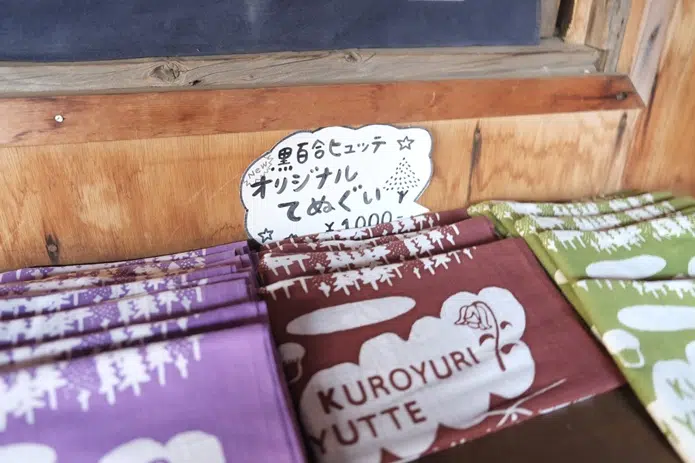 NEW
黒百合ヒュッテ
オリジナル
てぬぐい
¥1000-
KUROYURI
YUTTE